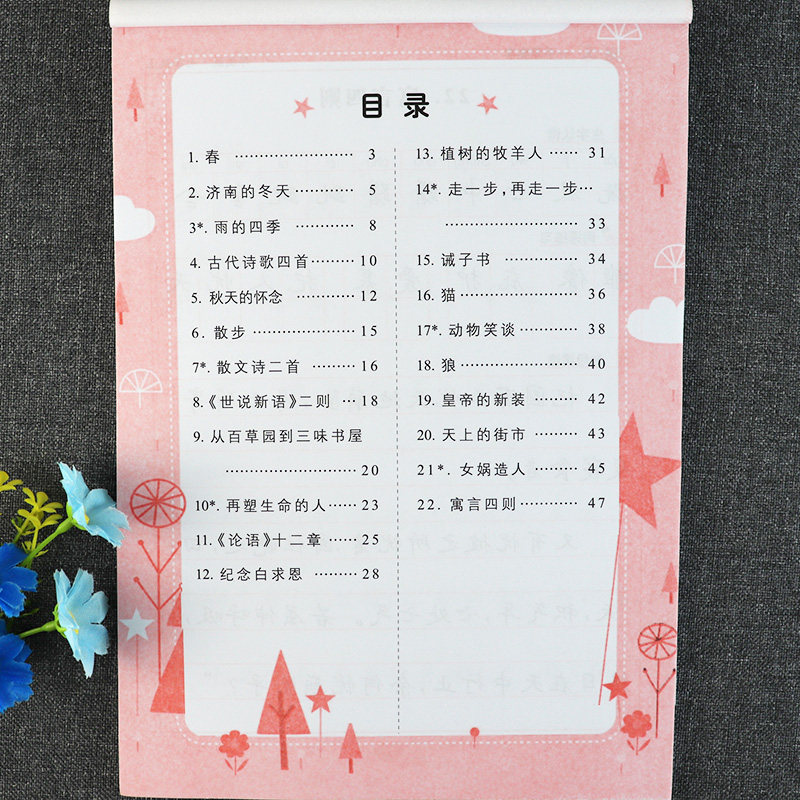 目 录
1. 春 ························ 3
2. 济南的冬天············ 5
3*. 雨的四季 ············ 8
4. 古代诗歌四首········· 10
5. 秋天的怀念 ············ 12
6. 散步 ····················· 15
7*. 散文诗二首 ········· 16
8.《世说新语》二则 ···18
9. 从百草园到三味书屋
··························· 20
10*. 再塑生命的人······ 23
11.《论语》十二章 ······ 25
12. 纪念白求恩 ········· 28
13. 植树的牧羊人 ······ 31
14*. 走一步，再走一步···
··························· 33
15. 诫子书 ··············· 34
16. 猫························ 36
17*. 动物笑谈············ 38
18. 狼························ 40
19. 皇帝的新装 ········· 42
20. 天上的街市 ········· 43
21*. 女娲造人 ········· 45
22. 寓言四则············ 47